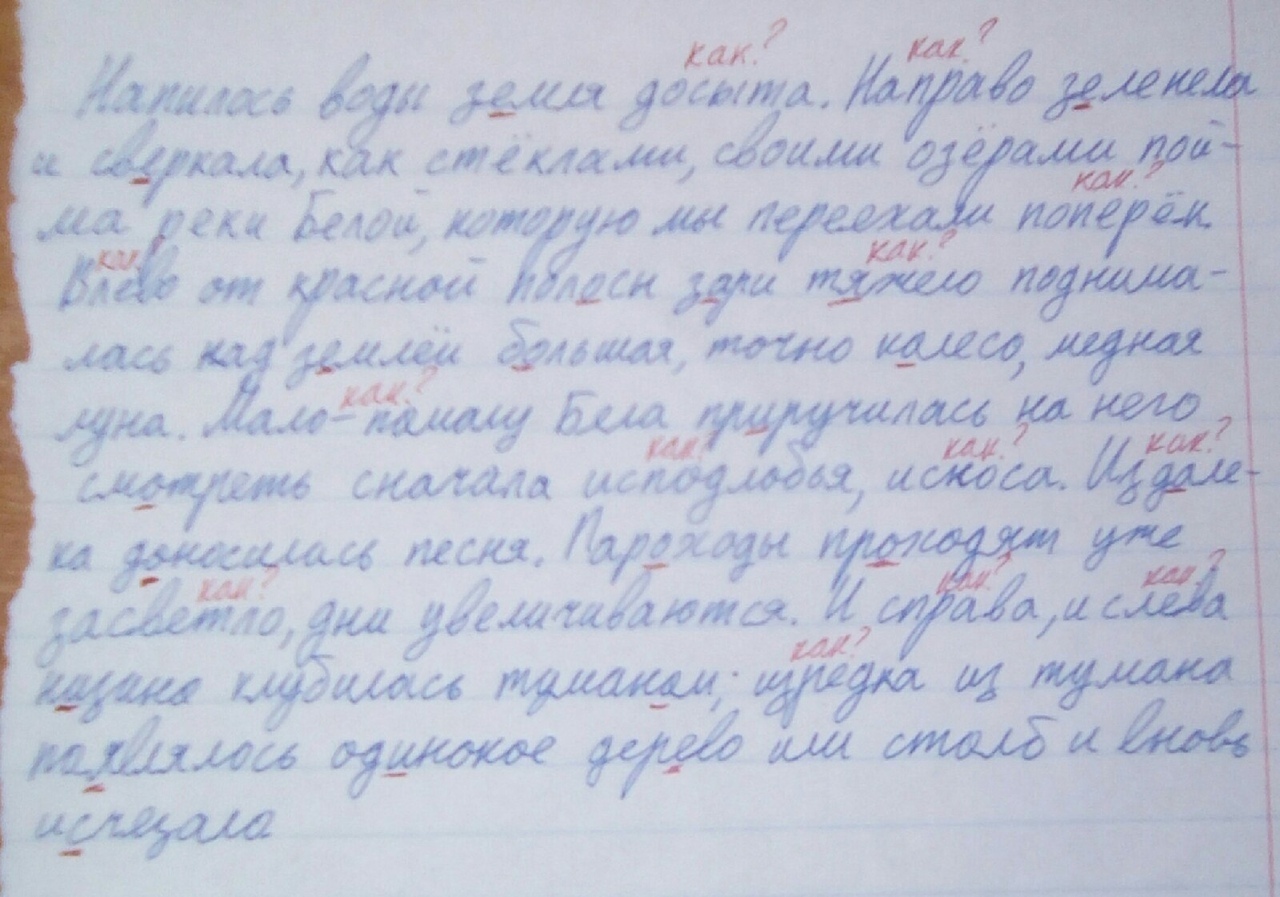 как? как?
Напилась воды земля досыта. Направо зеленела
и сверкала, как стёклами, своими озёрами пой-
как?
ма реки Белой, которую мы переехали поперёк.
как? как?
Влево от красной полосы зари тяжело поднима-
лась над землёй большая, точно колесо, медная
как?
луна. Мало-помалу Бела приручилась на него
как? как? как?
смотреть сначала исподлобья, искоса. Издале-
ка доносилась песня. Пароходы проходят уже
как? как? как?
засветло, дни увеличиваются. И справа, и слева
как?
низина клубилась туманом; изредка из тумана
появлялось одинокое дерево или столб и вновь
исчезало